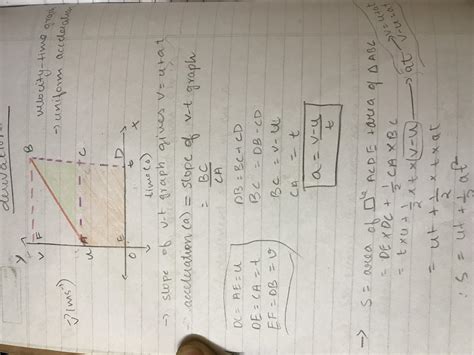 derivation
velocity-time graph
→ uniform acceleration
Y
V F B
v(ms⁻¹)
u A C
E D
O t X
time (s)
→ slope of v-t graph gives v=u+at
acceleration (a) = slope of v-t graph
= BC/CA
DC = AE = u
DE = CA = t
EF = DB = v
DB = BC+CD
BC = DB-CD
BC = v-u
CA = t
a = v-u/t
→ S = area of □le ACDE + area of ΔABC
= DE×DC + 1/2 CA×BC
v=u+at
= t×u + 1/2 × t × v-u → at v-u=at
= ut + 1/2 × t × at
∴ S = ut + 1/2 at²